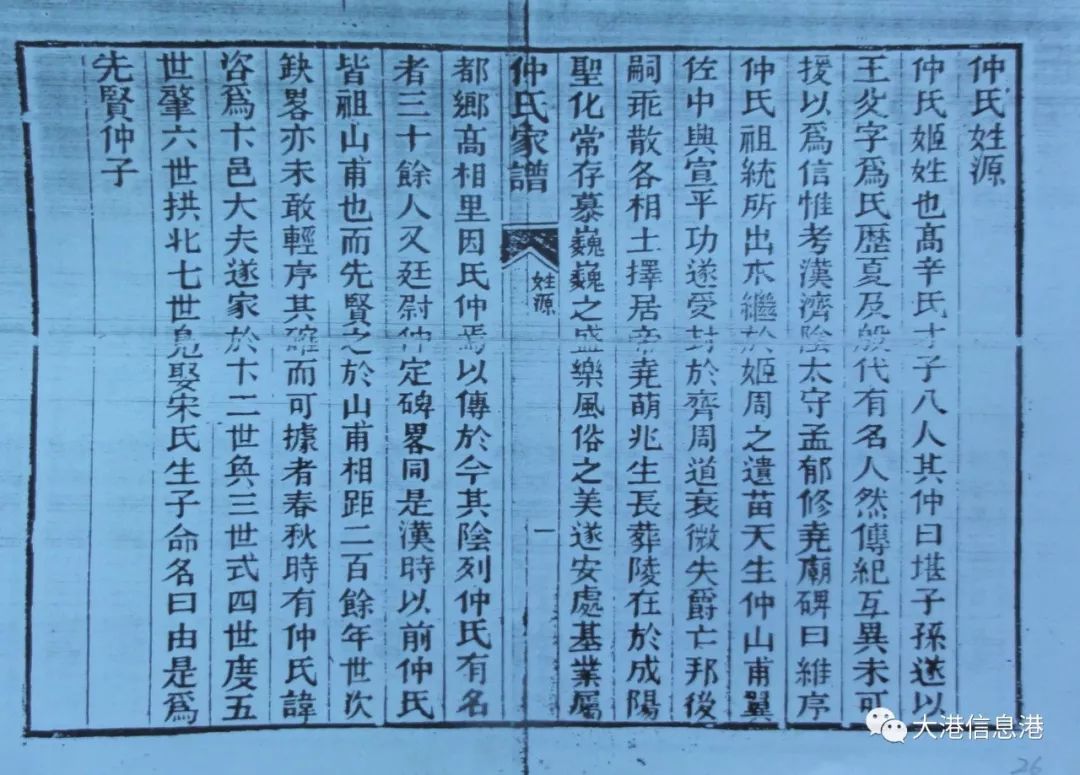 仲氏姓源
仲氏姬姓也髙辛氏才子八人其仲曰堪子孫遂以
王父字爲氏歴夏及殷代有名人然傳紀互異未可
援以爲信惟考漢濟陰太守孟郁修堯廟碑曰維序
仲氏祖統所出本繼於姬周之遺苗天生仲山甫翼
佐中興宣平功遂受封於齊周道衰微失爵亡邦後
嗣乖散各相土擇居帝堯萌兆生長葬陵在於成陽
聖化常存慕巍巍之盛樂風俗之美遂安處基業屬
仲氏家譜
姓源
一
都鄉髙相里因氏仲焉以傳於今其陰列仲氏有名
者三十餘人又廷尉仲定碑畧同是漢時以前仲氏
皆祖山甫也而先賢之於山甫相距二百餘年世次
缺畧亦未敢輕序其確而可據者春秋時有仲氏諱
咨爲卞邑大夫遂家於卞二世奐三世式四世度五
世肇六世拱北七世凫娶宋氏生子命名曰由是爲
先賢仲子
大港信息港
26